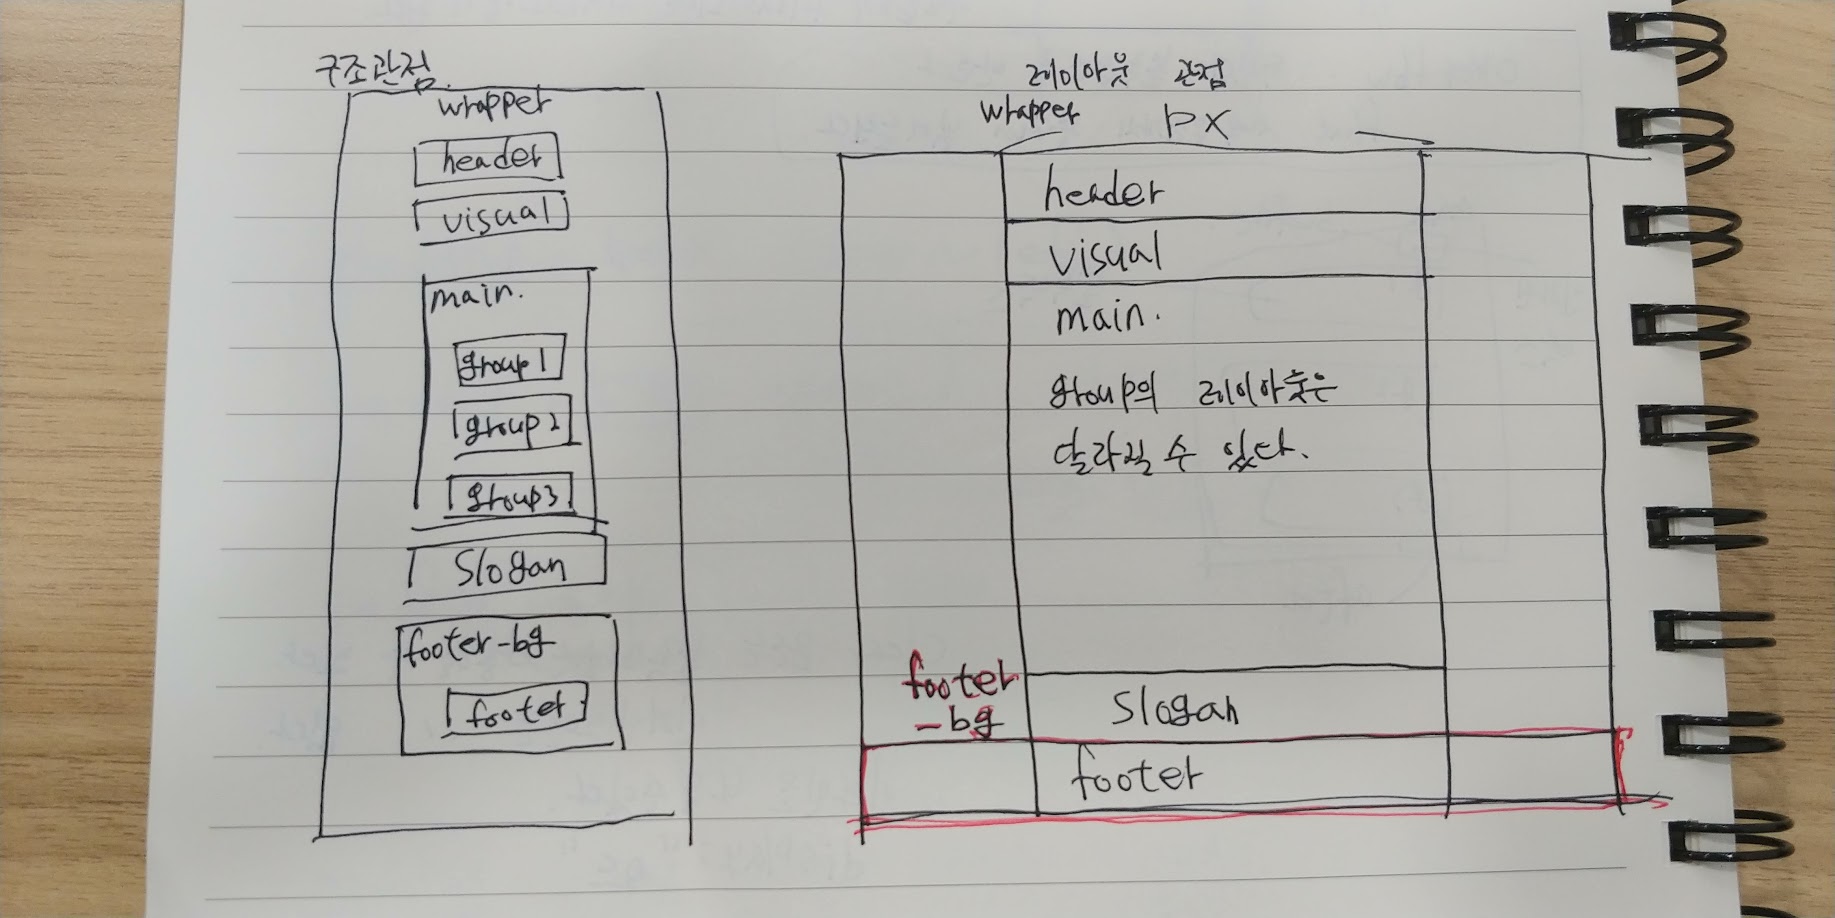 구조관점
wrapper
header
visual
main.
group1
group2
group3
Slogan
footer-bg
footer
레이아웃 관점
wrapper px
header
visual
main.
group의 레이아웃은
달라질 수 있다.
footer
-bg
Slogan
footer